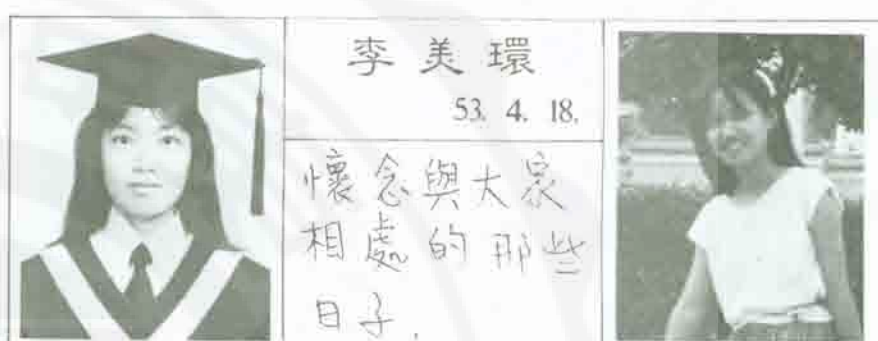 李美環
53. 4. 18.
懷念與大家
相處的那些
日子.